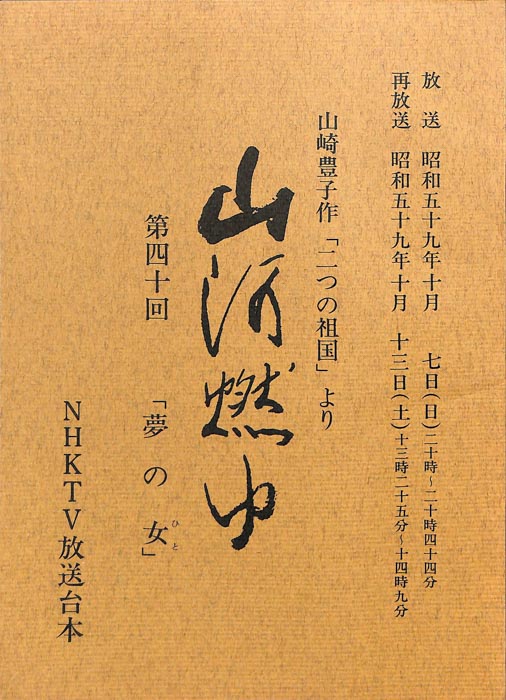 放送 昭和五十九年十月 七日(日)二十時~二十時四十四分
再放送 昭和五十九年十月 十三日(土)十三時二十五分~十四時九分
山崎豊子作「二つの祖国」より
山河燃ゆ
第四十回 「夢の女」
ひと
NHKTV放送台本